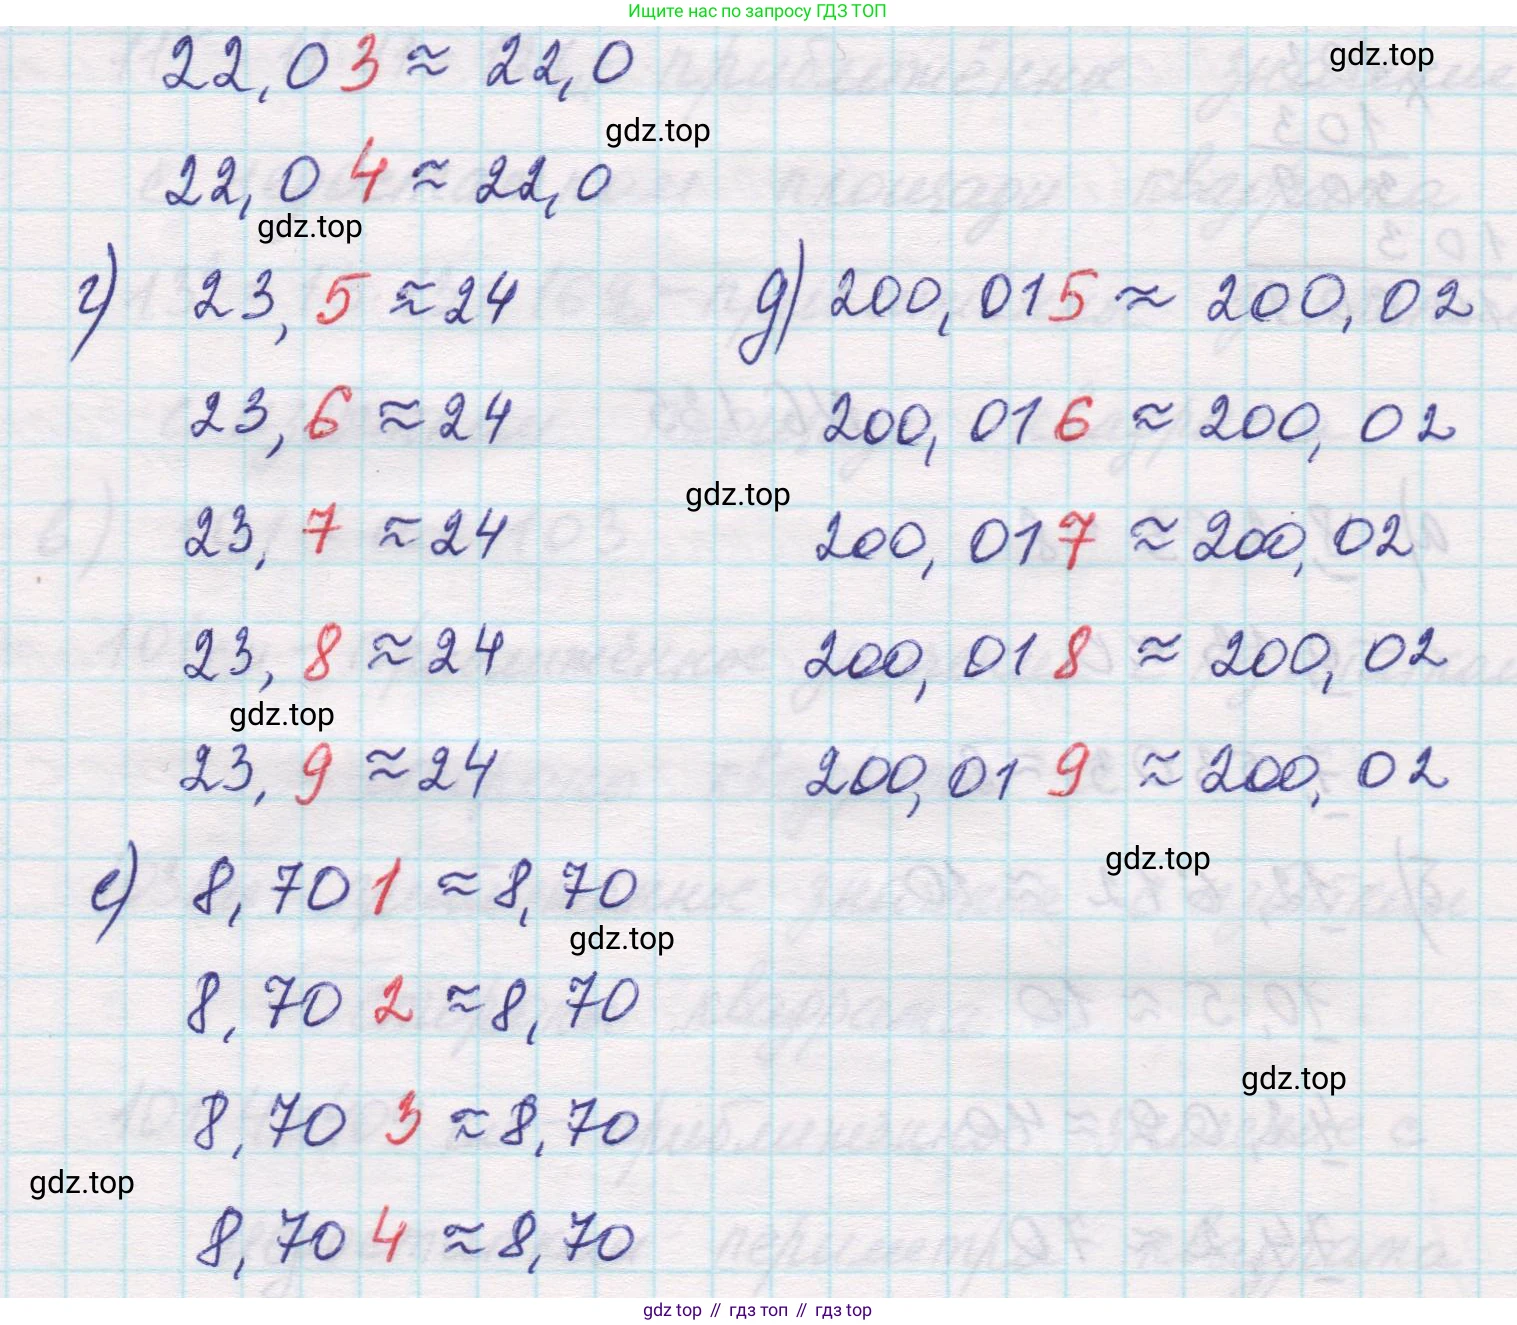 Ищите нас по запросу ГДЗ ТОП
22,03 ≈ 22,0
gdz.top
gdz.top
22,04 ≈ 22,0
gdz.top
г) 23,5 ≈ 24
23,6 ≈ 24
23,7 ≈ 24
23,8 ≈ 24
gdz.top
23,9 ≈ 24
д) 200,015 ≈ 200,02
200,016 ≈ 200,02
gdz.top
200,017 ≈ 200,02
200,018 ≈ 200,02
200,019 ≈ 200,02
gdz.top
е) 8,701 ≈ 8,70
gdz.top
8,702 ≈ 8,70
gdz.top
8,703 ≈ 8,70
gdz.top
8,704 ≈ 8,70
gdz top // гдз топ // гдз top